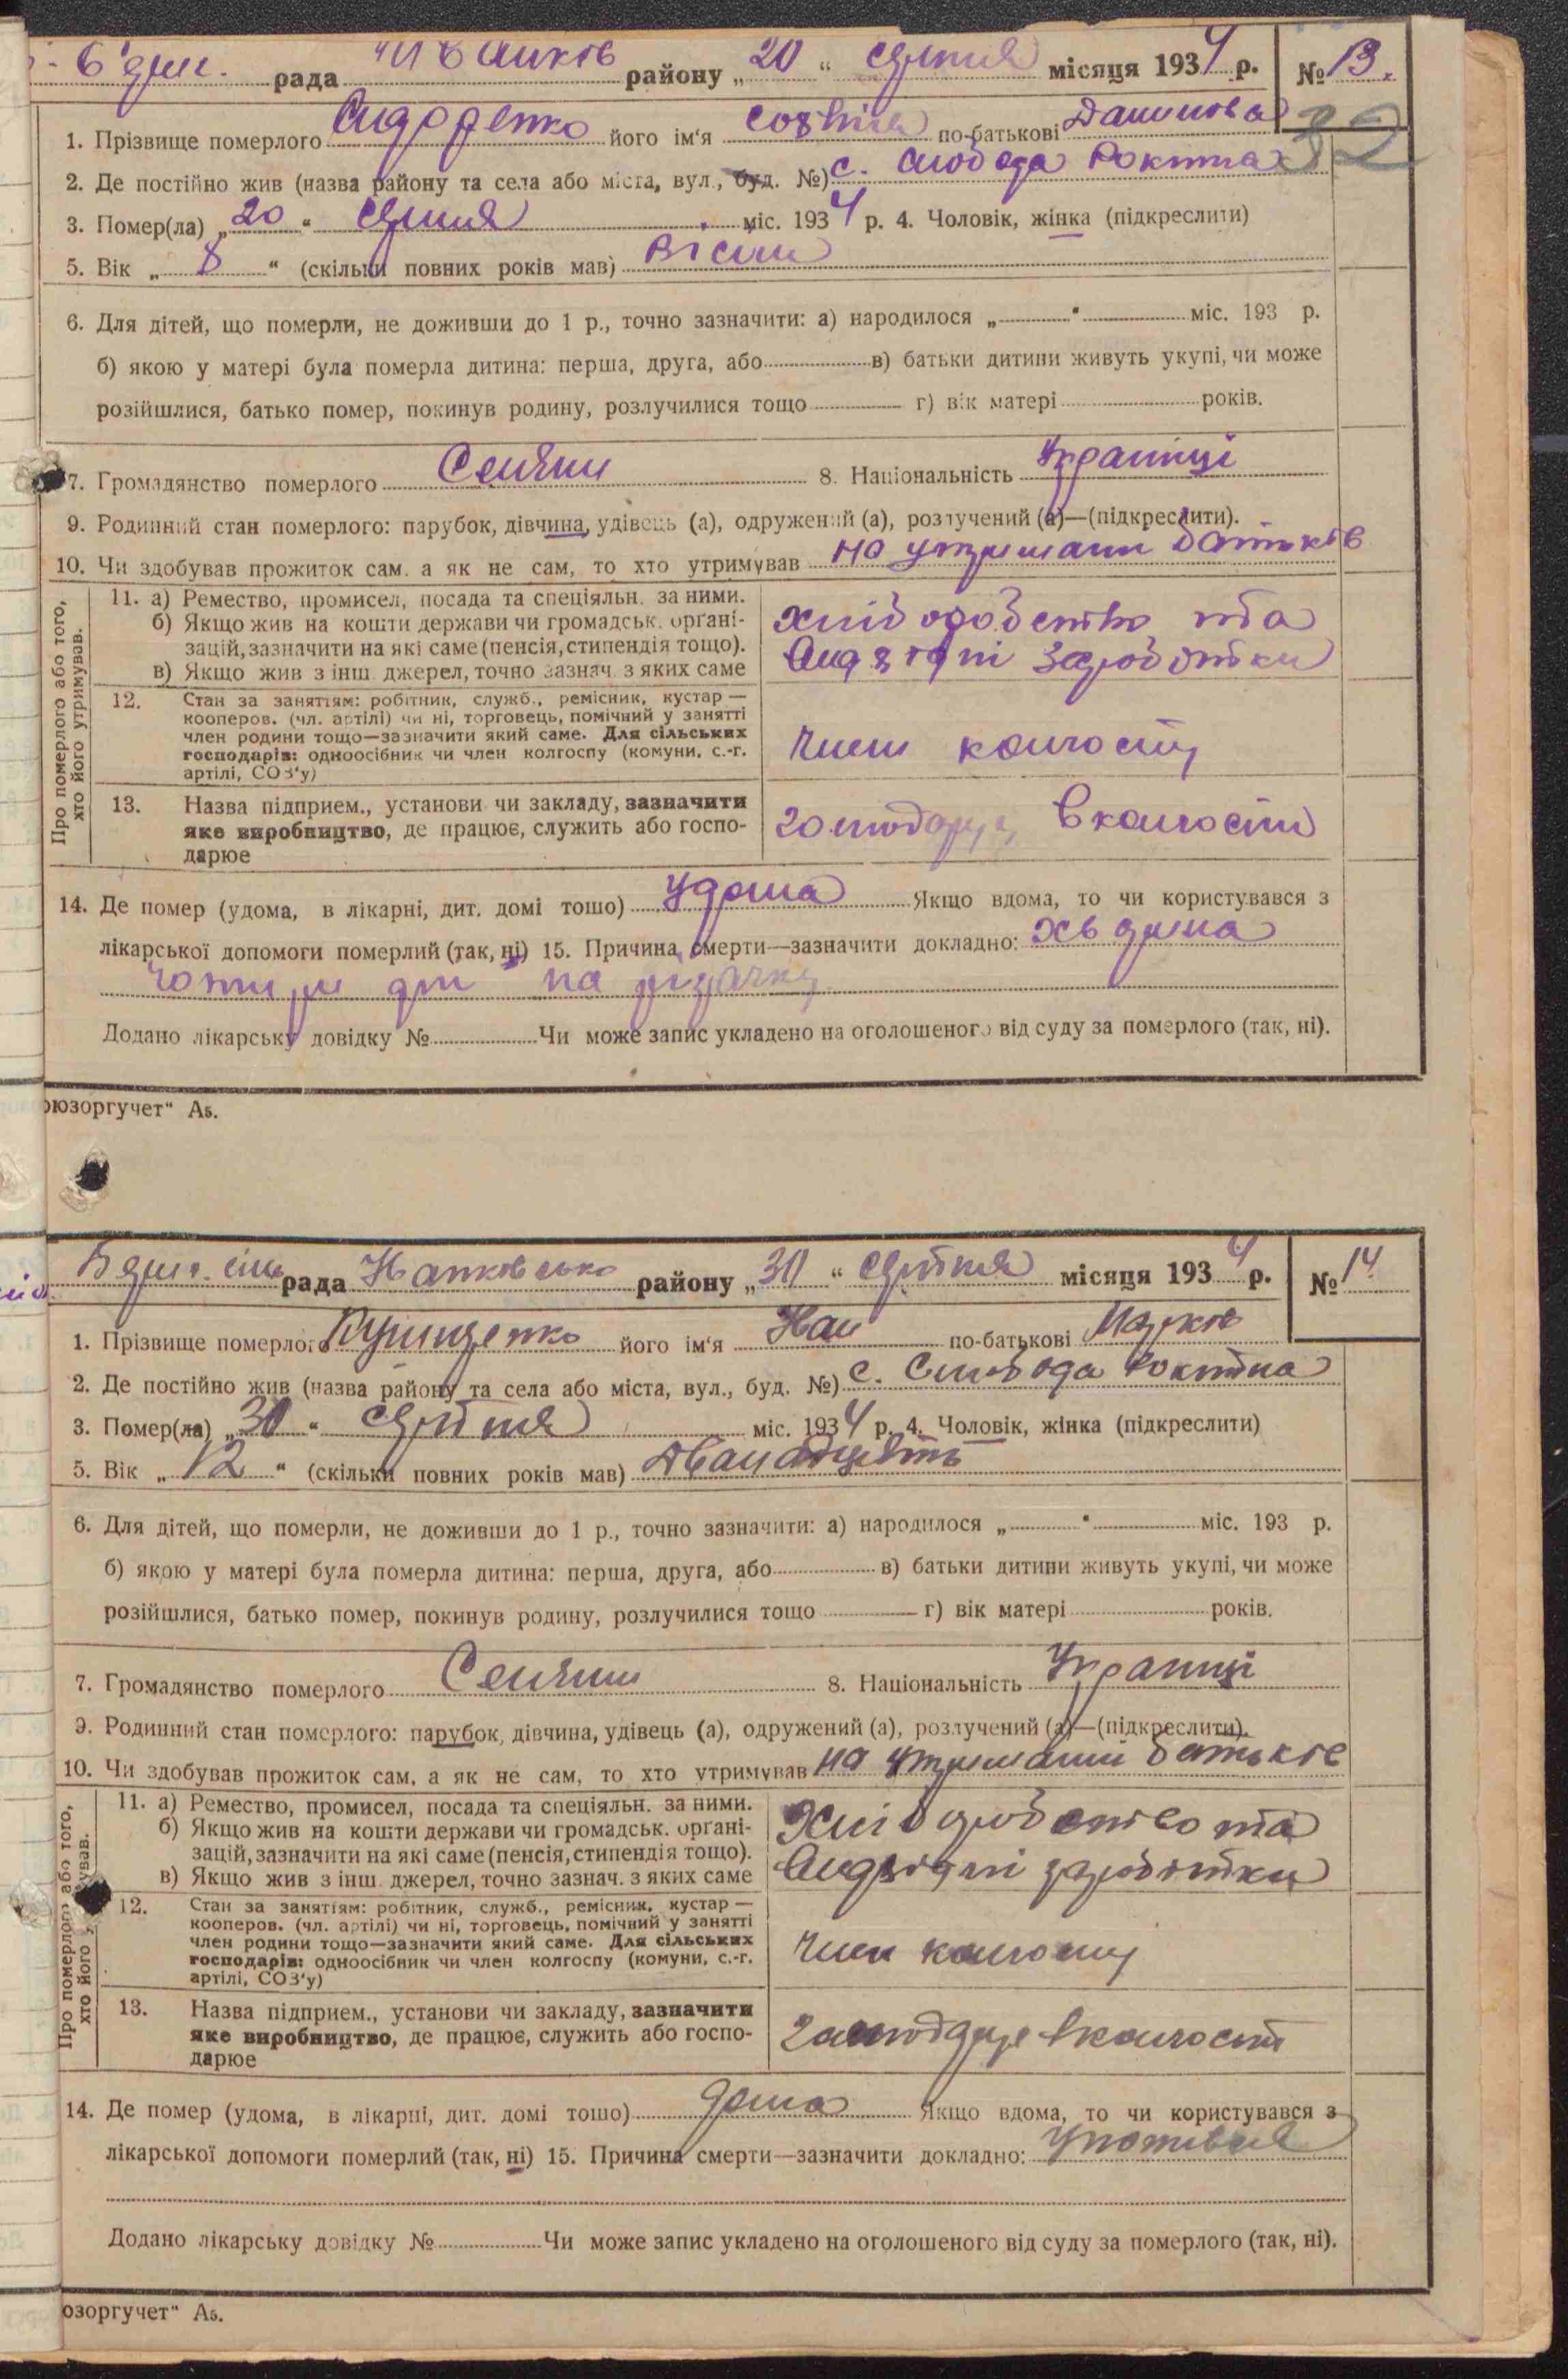 рада района району „20“ серпня місяця 1934 р. №13.
32
1. Прізвище померлого Сидоренко його ім‘я Софія по-батькові Данилова
2. Де постійно жив (назва району та села або міста, вул., буд. №) с. Слобода Рокитна
3. Помер(ла) „20“ серпня міс. 1934 р. 4. Чоловік, жінка (підкреслити)
5. Вік „8“ (скільки повних років мав) Вісім
6. Для дітей, що померли, не доживши до 1 р., точно зазначити: а) народилося „ “ міс. 193 р.
б) якою у матері була померла дитина: перша, друга, або в) батьки дитини живуть укупі, чи може
розійшлися, батько помер, покинув родину, розлучилися тощо г) вік матері років.
7. Громадянство померлого Селяни 8. Національність Українці
9. Родинний стан померлого: парубок, дівчина, удівець (а), одружений (а), розлучений (а)—(підкреслити).
10. Чи здобував прожиток сам, а як не сам, то хто утримував на утриманні батьків
Про померлого або того,
хто його утримував.
11. а) Ремество, промисел, посада та спеціяльн. за ними.
б) Якщо жив на кошти держави чи громадськ. органі-
зацій, зазначити на які саме (пенсія, стипендія тощо).
в) Якщо жив з інш. джерел, точно зазнач. з яких саме
заробітки
12. Стан за заняттям: робітник, служб., ремісник, кустар —
кооперов. (чл. артілі) чи ні, торговець, помічний у занятті
член родини тощо—зазначити який саме. Для сільських
господарів: одноосібник чи член колгоспу (комуни, с.-г.
артілі, СОЗ‘у)
член колгоспу
13. Назва підприєм., установи чи закладу, зазначити
яке виробництво, де працює, служить або госпо-
дарює
господарює в колгоспі
14. Де помер (удома, в лікарні, дит. домі тощо) удома Якщо вдома, то чи користувався з
лікарської допомоги померлий (так, ні) 15. Причина смерти—зазначити докладно:
чотири дні на
Додано лікарську довідку № Чи може запис укладено на оголошеного від суду за померлого (так, ні).
юзоргучет“ А5.
рада району „30“ серпня місяця 1934 р. №14
1. Прізвище померлого його ім‘я по-батькові Марків
2. Де постійно жив (назва району та села або міста, вул., буд. №) с. Слобода Рокитна
3. Помер(ла) „30“ серпня міс. 1934 р. 4. Чоловік, жінка (підкреслити)
5. Вік „12“ (скільки повних років мав) Дванадцять
6. Для дітей, що померли, не доживши до 1 р., точно зазначити: а) народилося „ “ міс. 193 р.
б) якою у матері була померла дитина: перша, друга, або в) батьки дитини живуть укупі, чи може
розійшлися, батько помер, покинув родину, розлучилися тощо г) вік матері років.
7. Громадянство померлого Селяни 8. Національність Українці
9. Родинний стан померлого: парубок, дівчина, удівець (а), одружений (а), розлучений (а)—(підкреслити).
10. Чи здобував прожиток сам, а як не сам, то хто утримував на утриманні батьків
Про померлого або того,
хто його
11. а) Ремество, промисел, посада та спеціяльн. за ними.
б) Якщо жив на кошти держави чи громадськ. органі-
зацій, зазначити на які саме (пенсія, стипендія тощо).
в) Якщо жив з інш. джерел, точно зазнач. з яких саме
заробітки
12. Стан за заняттям: робітник, служб., ремісник, кустар —
кооперов. (чл. артілі) чи ні, торговець, помічний у занятті
член родини тощо—зазначити який саме. Для сільських
господарів: одноосібник чи член колгоспу (комуни, с.-г.
артілі, СОЗ‘у)
член колгоспу
13. Назва підприєм., установи чи закладу, зазначити
яке виробництво, де працює, служить або госпо-
дарює
господарює в колгоспі
14. Де помер (удома, в лікарні, дит. домі тощо) дома Якщо вдома, то чи користувався з
лікарської допомоги померлий (так, ні) 15. Причина смерти—зазначити докладно:
Додано лікарську довідку № Чи може запис укладено на оголошеного від суду за померлого (так, ні).
озоргучет“ А5.